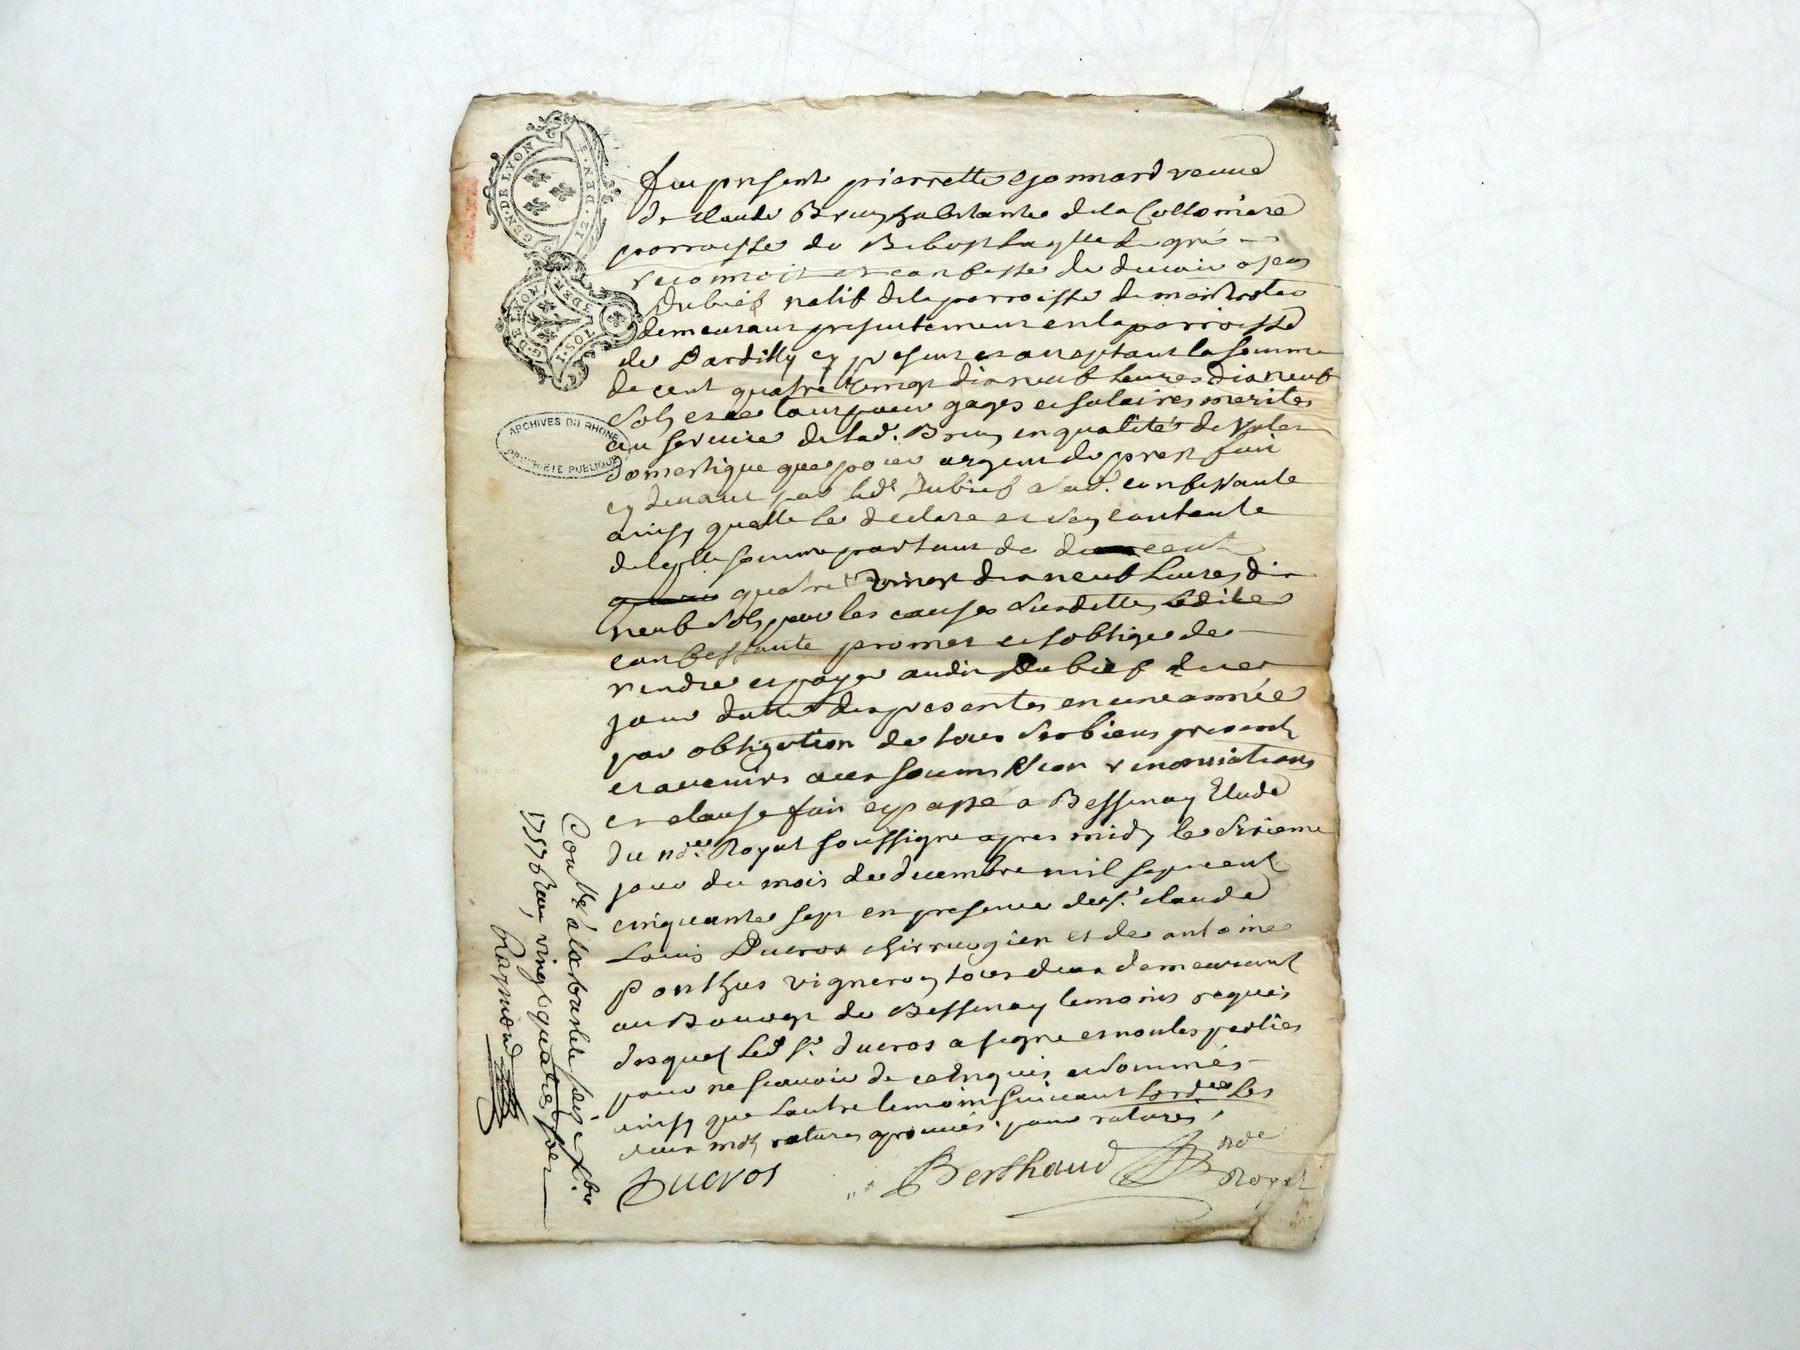 GEN. DE LYON
G. DE LYON
ARCHIVES DU RHONE
PROPRIETE PUBLIQUE
Fut presente pierrette gonnard veuve
de claude Brun habitante de la
parroisse de Bibost laqlle de gré
reconnoit et confesse de devoir a jean
Dubief natif de la parroisse de
demeurant presentement en la parroisse
de Dardilly cy present et acceptant la somme
de cent quatre vingt dix neuf livres dix neuf
sols et ce tant pour gages et salaires merités
au service de lad. Brun en qualité de valet
domestique que pour argent de prest fait
cy devant par led. Dubief a lad. confessante
ainsy quelle le declare et sen contente
de laqlle somme partant de cent
quatre vingt dix neuf livres dix
neuf sols pour les causes susdittes ladite
confessante promet et soblige de
rendre et payer audit Dubief de ce
jour datte des presentes en une année
par obligation de tous ses biens presents
et avenirs aux soumission renonciations
et clause fait et passé a Bessenay Etude
du nore. Royal soussigné apres midy le sixieme
jour du mois de decembre mil sept cent
cinquante sept en presence de sr. claude
Louis Ducros chirrugien et de antoine
Ponthus vigneron tous deux demeurant
au Bourg de Bessenay temoins requis
desquel led. sr. ducros a signé et non les parties
pour ne scavoir de ce enquis et sommés
ainsy que l'autre temoin suivant lordce les
deux mots raturés aprouvés pour raturés
Ducros
Berthaud
nore
Royal
Contlé à larbresle le six xbre
1757 Reçu vingt quatre sols
Raymond